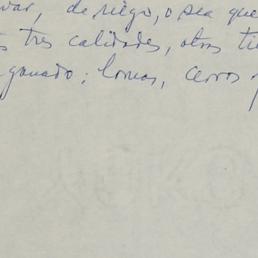 de riego, o sea que
tres calidades, otros
ganado; lomas, cerros